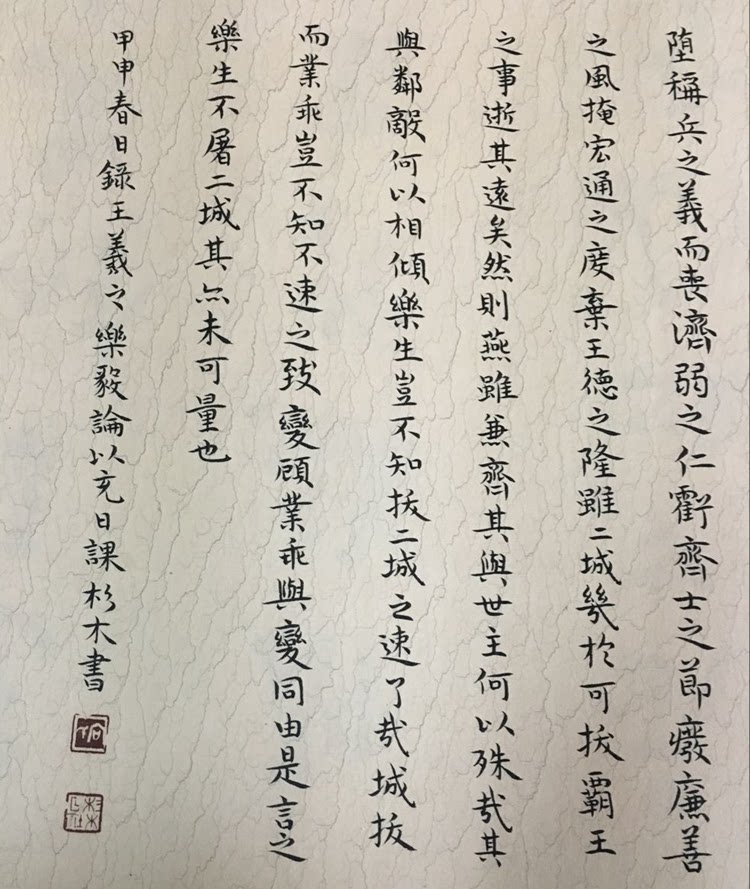 墮稱兵之義而喪濟弱之仁虧齊士之節癈廉善
之風掩宏通之度棄王德之隆雖二城幾於可拔霸王
之事逝其遠矣然則燕雖兼齊其與世主何以殊哉其
與鄰敵何以相傾樂生豈不知拔二城之速了哉城拔
而業乖豈不知不速之致變顧業乖與變同由是言之
樂生不屠二城其亦未可量也
甲申春日錄王羲之樂毅論以充日課杉木書